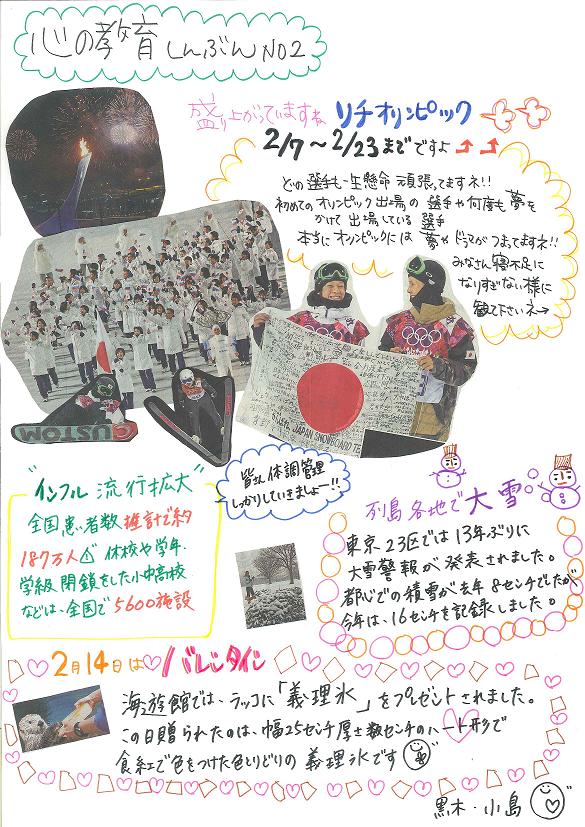 心の教育しんぶん NO2
盛り上がっていますね ソチオリンピック
2/7~2/23まで ですよ
どの選手も一生懸命 頑張ってますネ!!
初めてのオリンピック出場の 選手や何度も夢を
かけて出場している 選手
本当にオリンピックには 夢やドラマがつまってますネ!!
みなさん寝不足に
なりすぎない様に
観て下さいネ→
CUSTOM
JAPAN SNOWBOARD
"インフル 流行拡大"
全国患者数 推計で約
187万人 休校や学年、
学級閉鎖をした小中高校
などは、全国で 5600施設
皆さん体調管理
しっかりしていきましょー!!
列島各地で大雪
東京23区では 13年ぶりに
大雪警報が発表されました。
都心での積雪が去年8センチでしたが
今年は、16センチを記録しました。
2月14日は バレンタイン
海遊館では、ラッコに「義理氷」をプレゼントされました。
この日贈られたのは、幅25センチ厚さ数センチのハート形で
食紅で色をつけた色とりどりの 義理氷です
黒木・小島